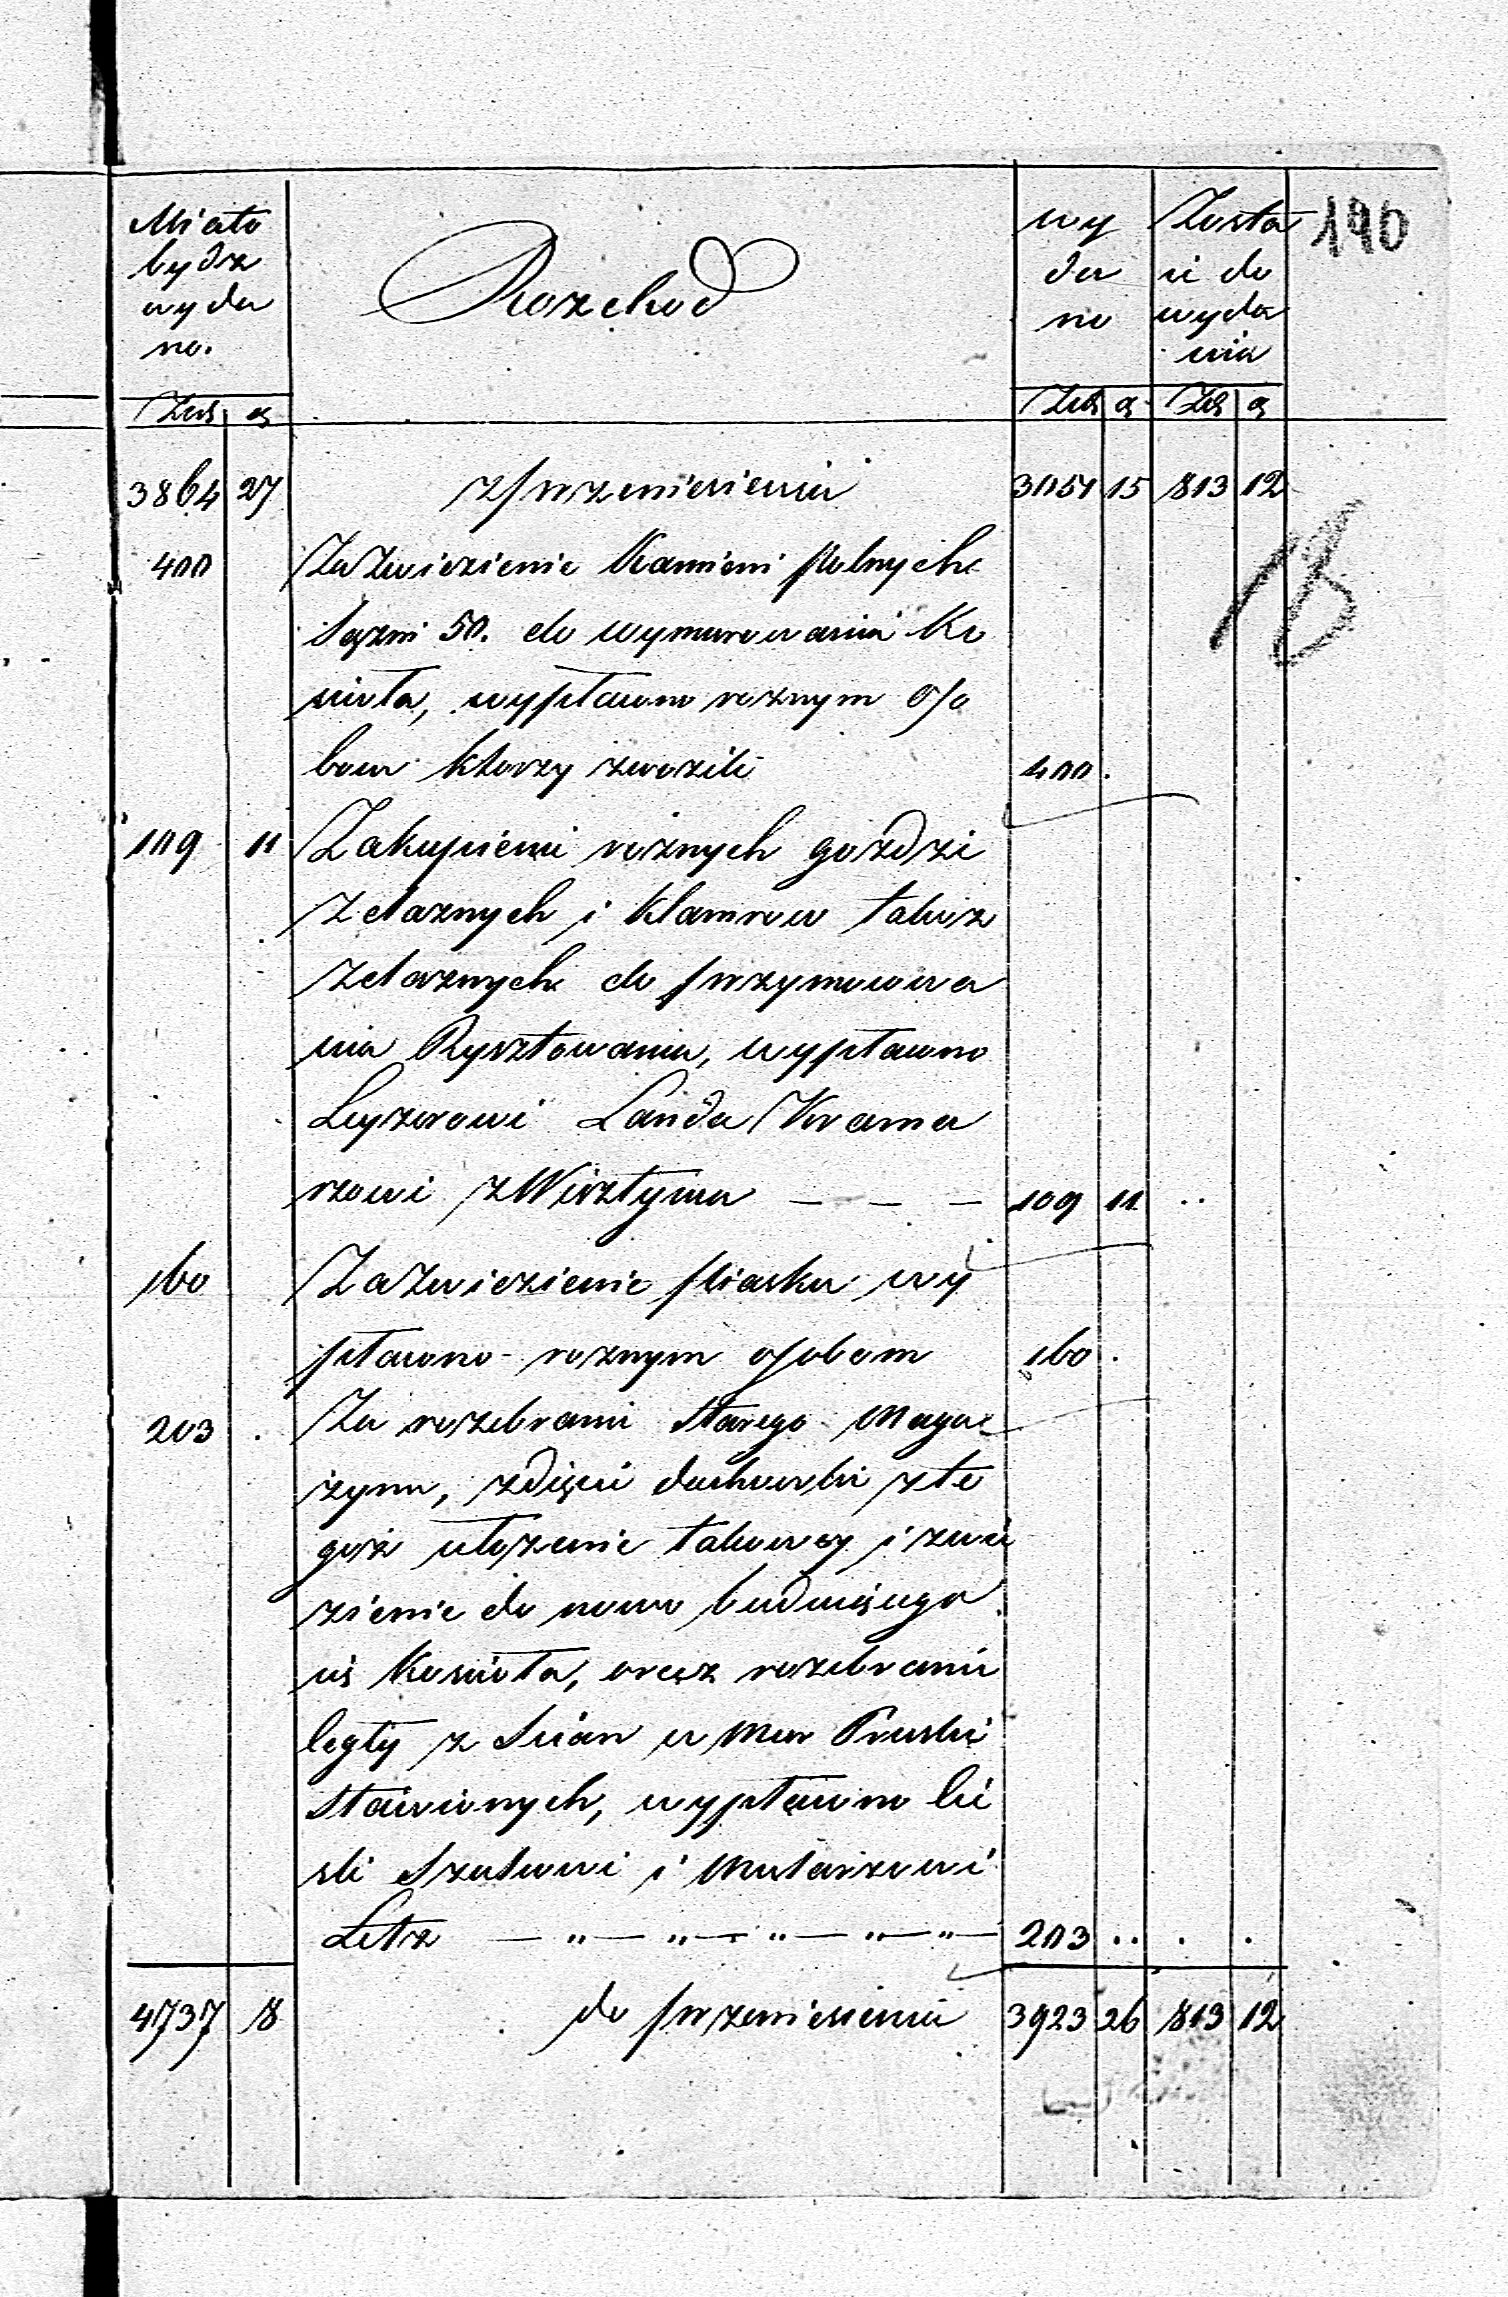 190
Miało bydz wyda no.
Rozchod
wy da no
Zosta ie do wyda nia
Złt g
Złt g Złt g
3864 27 z przeniesienia 3051 15 813 12
400 Za Zwiezienie Kamieni polnych
Sązni 50. do wymurowania Ko
scioła, wypłacono roznym oso
bom ktorzy zwozili 400 .
109 11 Zakupienie roznych gozdzi
Zelaznych i Klamrow takze
Zelaznych do przymocowa
nia Rysztowania, wypłacono
Leyzorowi Landa Krama
rzowi z Wisztyna — — — 109 11 ..
160 Za Zwiezienie piasku wy
płacono roznym osobom 160 .
203 . Za rozebranie Starego Maga=
zynu, zdięcie dachowki z te
goz ułozenie takowey i zwie
zienie do nowo buduiącego
się Koscioła, oraz rozebranie
cegły z Scian w Mur Pruski
Stawionych, wypłacono Cie
sli Szulcowi i Mularzowi
Letz — „ — „ — „ — „ — „ — 203 .. . .
4737 8 do przeniesienia 3923 26 813 12